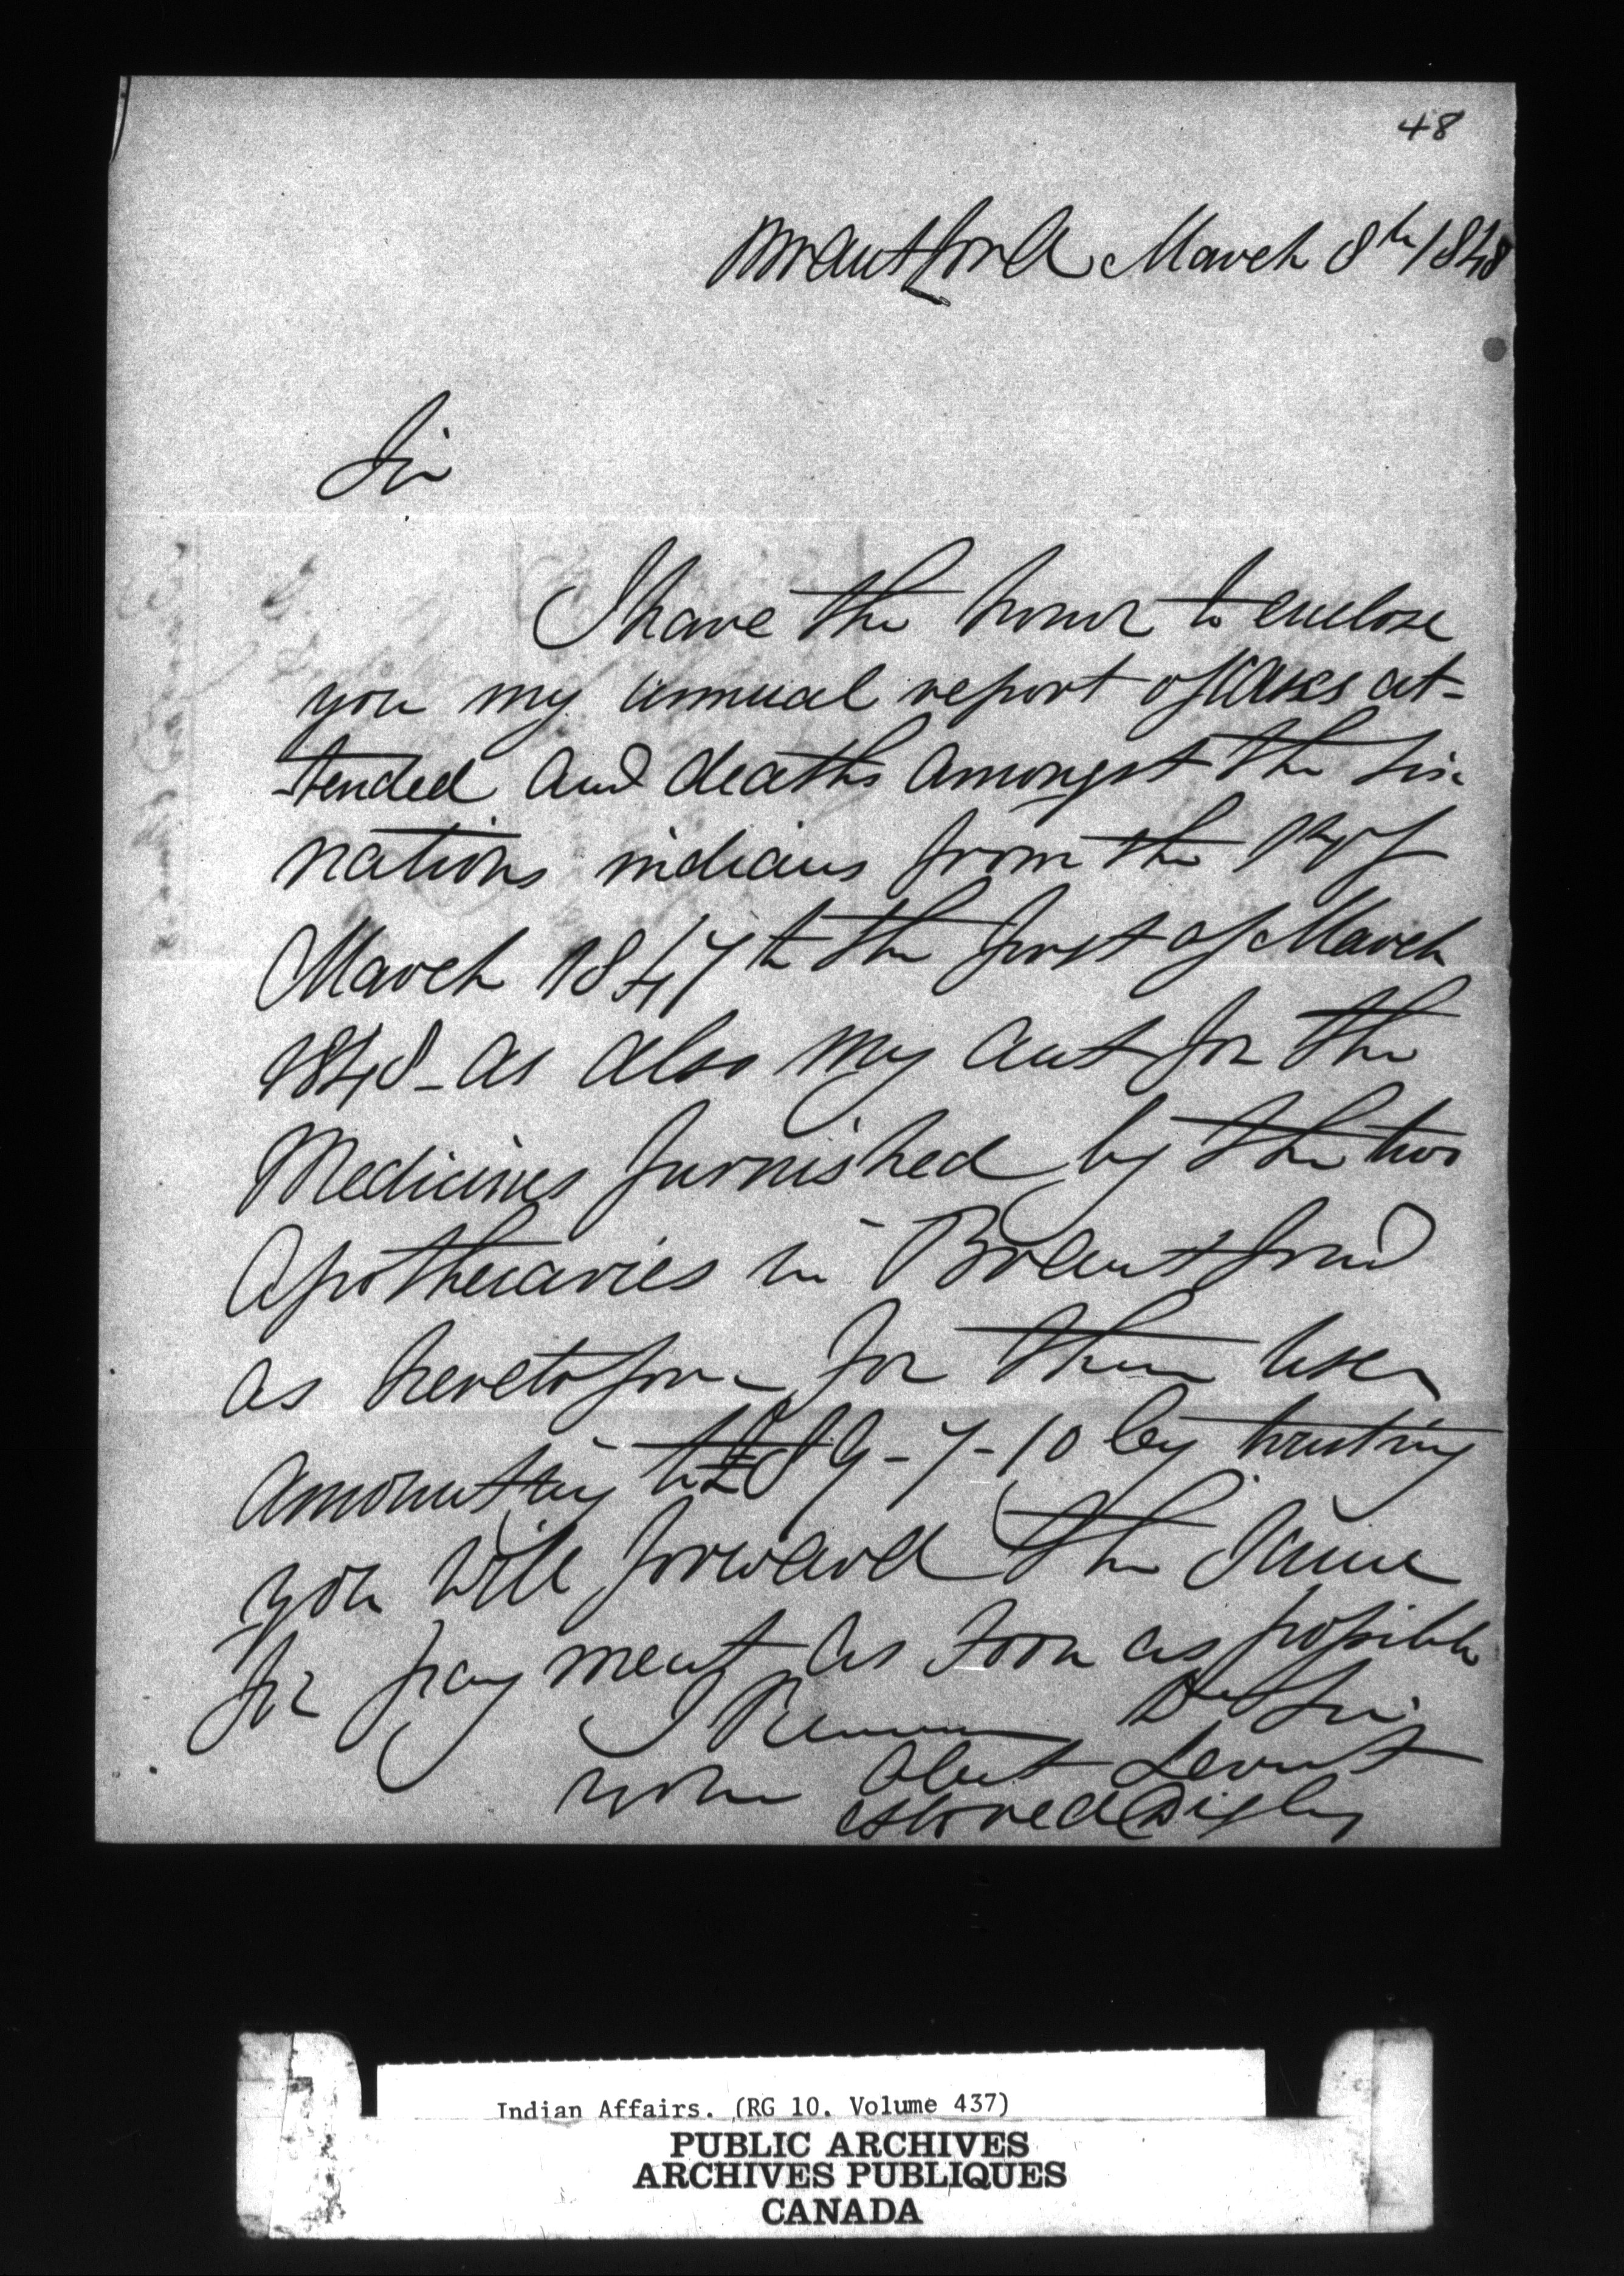 48
Brantford March 8th 1848
Sir
I have the honor to enclose
you my annual report of cases at-
-tended and deaths amongst the Six
nations indians from the 1st of
March 1847 to the first of March
1848 - as also my acct for the
Medicines furnished by the two
Apothecaries in Brantford
as heretofore for their use
amounting to £89-7-10 by trusting
you will forward the same
for payment as soon as possible
I Remain Dr Sir
your Obet Servt
Alfred Digby
Indian Affairs. (RG 10. Volume 437)
PUBLIC ARCHIVES
ARCHIVES PUBLIQUES
CANADA